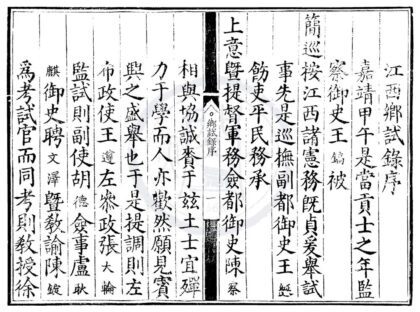 江西鄉試錄序
嘉靖甲午是當貢士之年監
察御史王鎬被
簡巡按江西諸憲務既貞爰舉試
事先是巡撫副都御史王
飭吏平民務承
上意暨提督軍務僉都御史陳察
鄉試錄序
一
相與協誠賚于茲土士宜殫
力于學而人亦懽然願見賓
興之盛舉也于是提調則左
布政使王逵左叅政張大輪
監試則副使胡德僉事盧耿
麒御史聘文澤暨敎諭陳綻
爲考試官而同考則敎授徐